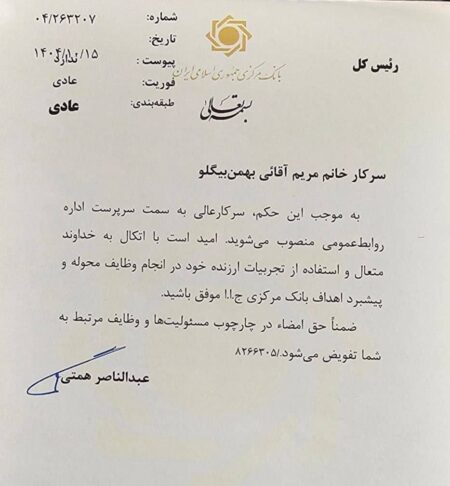 شماره: ۰۴/۲۶۳۲۰۷
تاریخ: ۱۴۰۴/۱۰/۱۵
پیوست: ندارد
فوریت: عادی
طبقه‌بندی: عادی
بانک مرکزی جمهوری اسلامی ایران
رئیس کل
بسمه تعالی
سرکار خانم مریم آقائی بهمن‌بیگلو
به موجب این حکم، سرکارعالی به سمت سرپرست اداره
روابط‌عمومی منصوب می‌شوید. امید است با اتکال به خداوند
متعال و استفاده از تجربیات ارزنده خود در انجام وظایف محوله و
پیشبرد اهداف بانک مرکزی ج.ا.ا موفق باشید.
ضمناً حق امضاء در چارچوب مسئولیت‌ها و وظایف مرتبط به
شما تفویض می‌شود./۸۲۶۶۳۰۵
عبدالناصر همتی